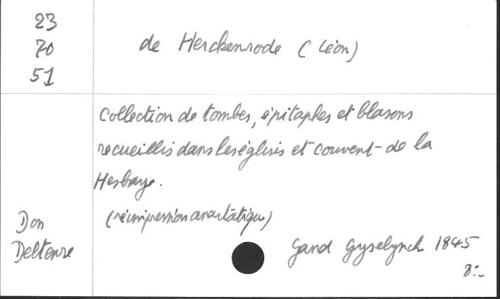 23
70
51
de Herckenrode (Léon)
Collection de tombes, épitaphes et blasons
recueillis dans les églises et couvent de la
Hesbaye.
(réimpression anastatique)
Don
Deltenre
Gand Gyselynck 1845
8:-